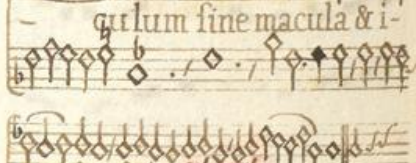 - qulum sine macula & i-